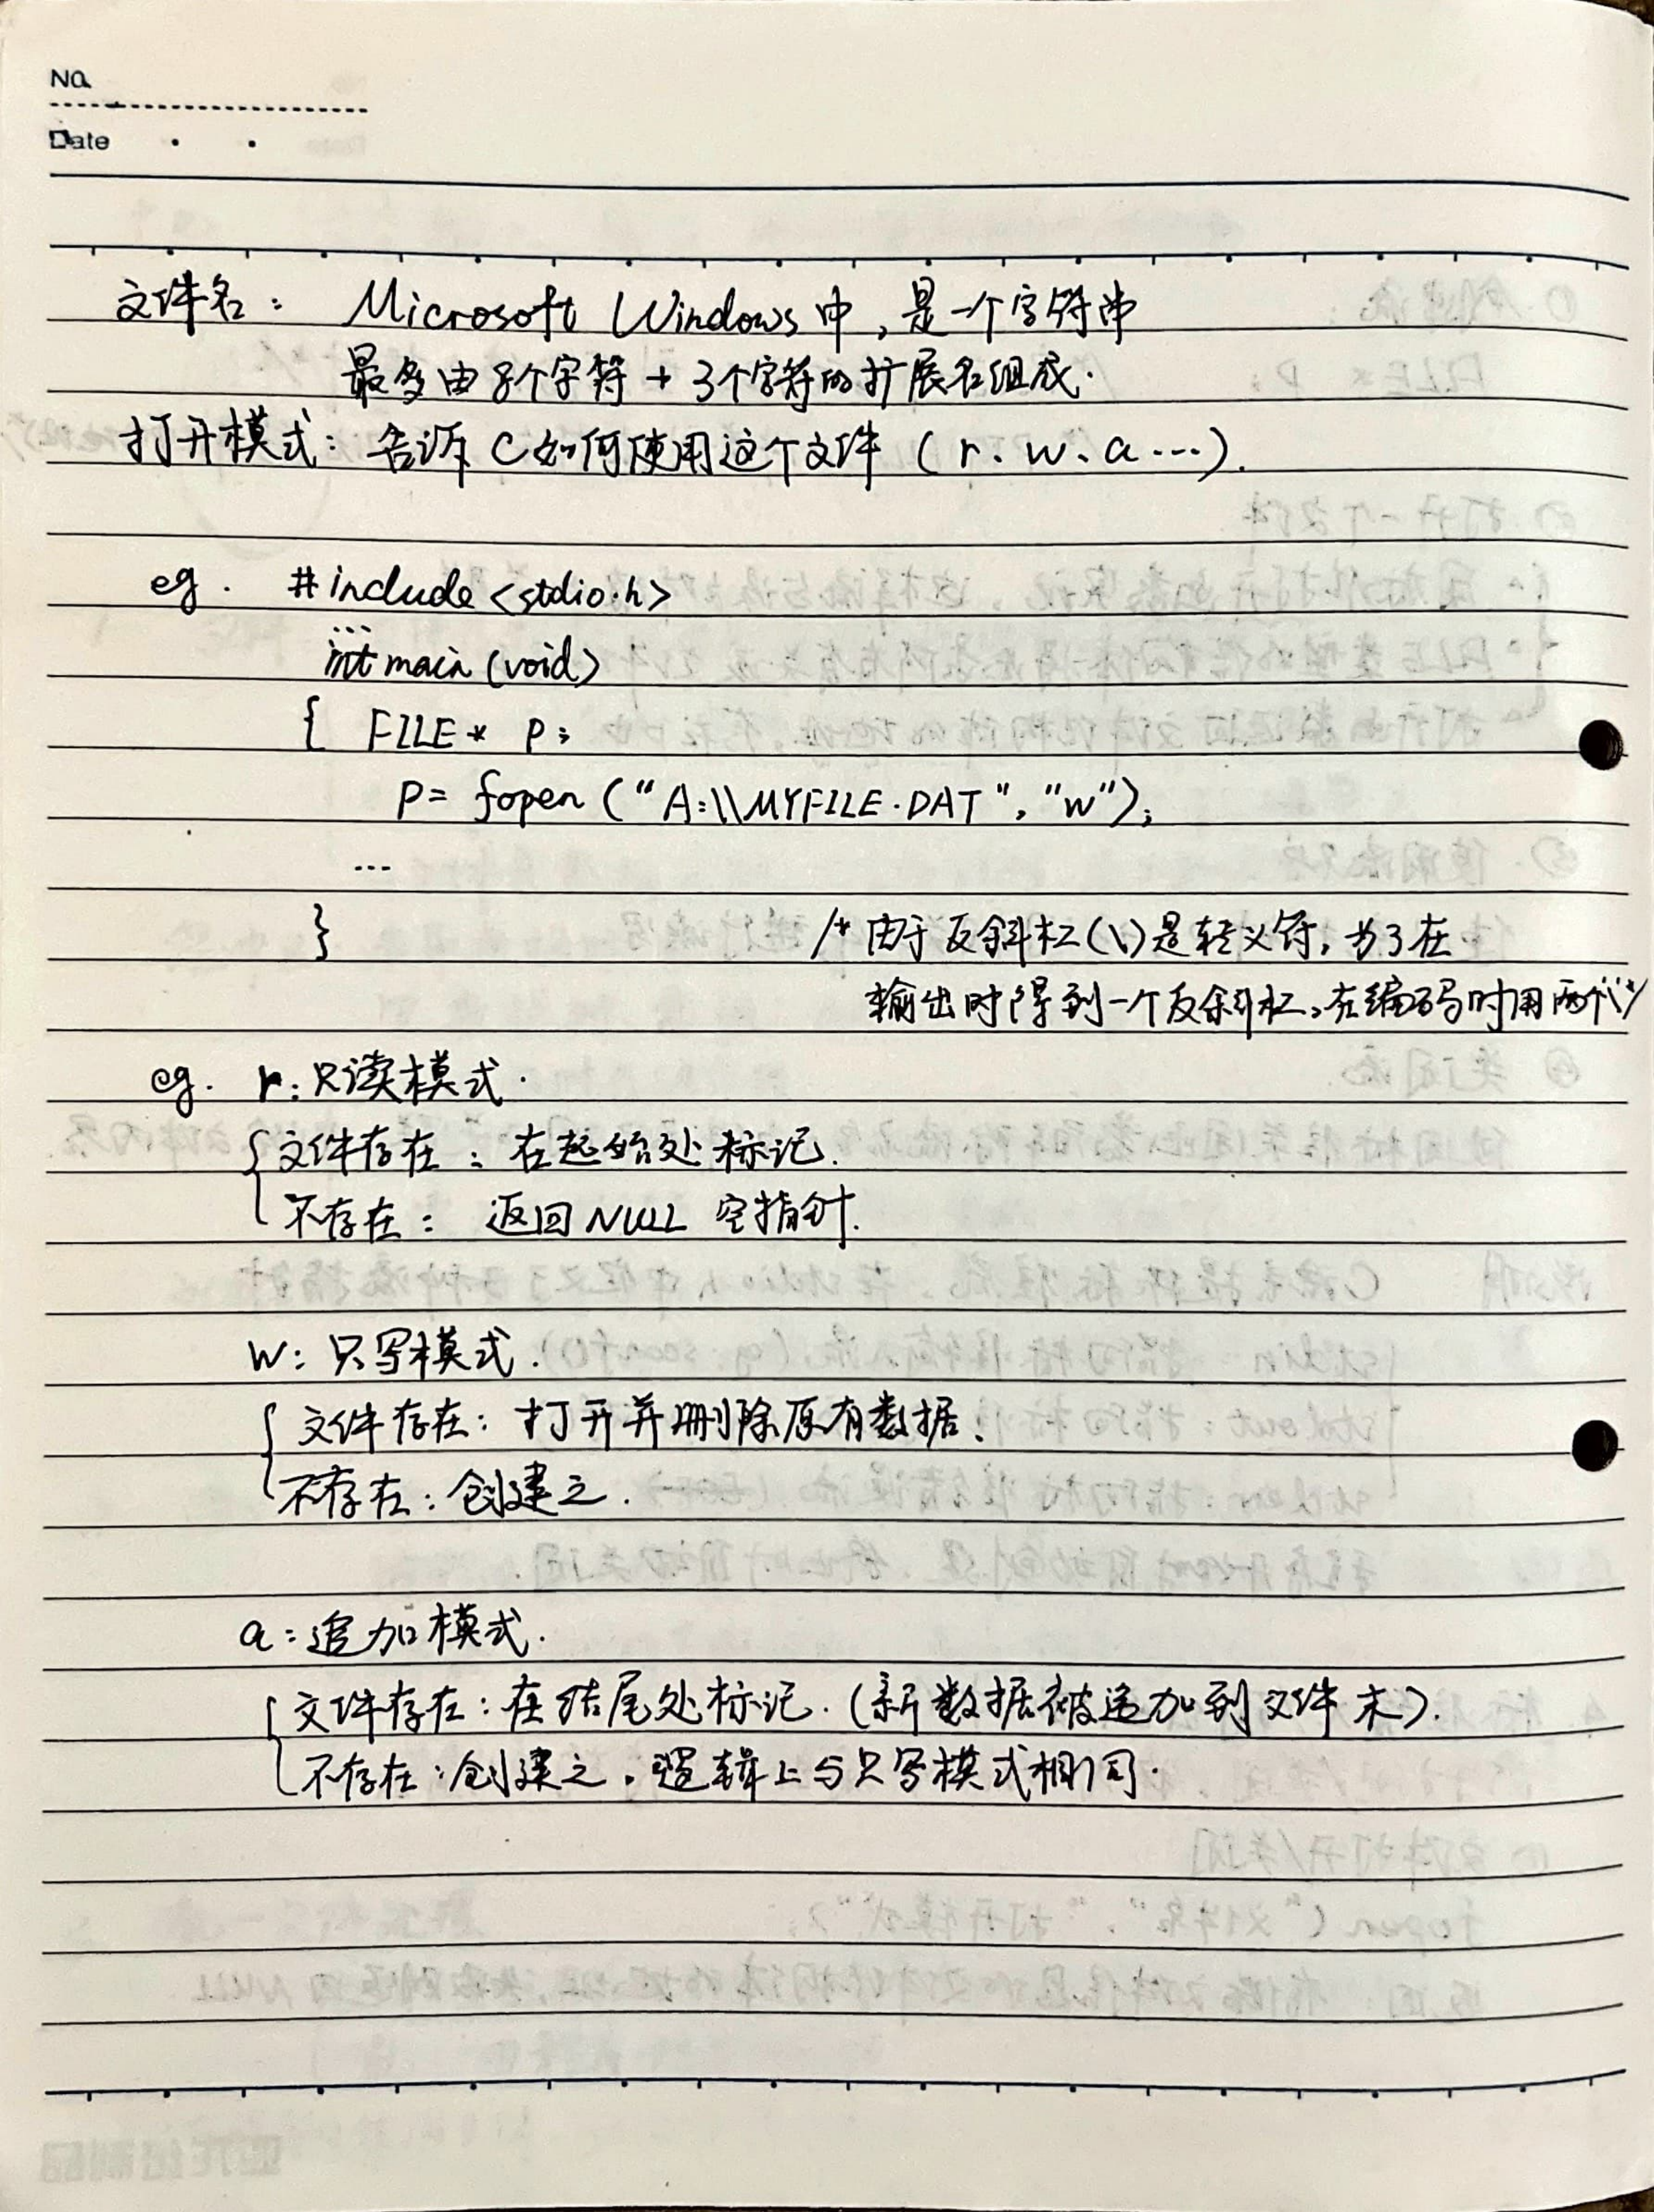 No.
Date
文件名： Microsoft Windows中，是一个字符串
最多由8个字符 + 3个字符的扩展名组成.
打开模式：告诉C如何使用这个文件（r、w、a…）.
eg. #include<stdio.h>
...
int main(void)
{ FILE* P;
P= fopen("A:\\MYFILE.DAT", "w");
...
} /* 由于反斜杠(\)是转义符，为了在
输出时得到一个反斜杠，在编码时用两个\*/
eg. r：只读模式.
文件存在：在起始处标记.
不存在： 返回NULL 空指针.
w：只写模式.
文件存在：打开并删除原有数据.
不存在：创建之.
a：追加模式.
文件存在：在结尾处标记.（新数据被追加到文件末）.
不存在：创建之，逻辑上与只写模式相同.